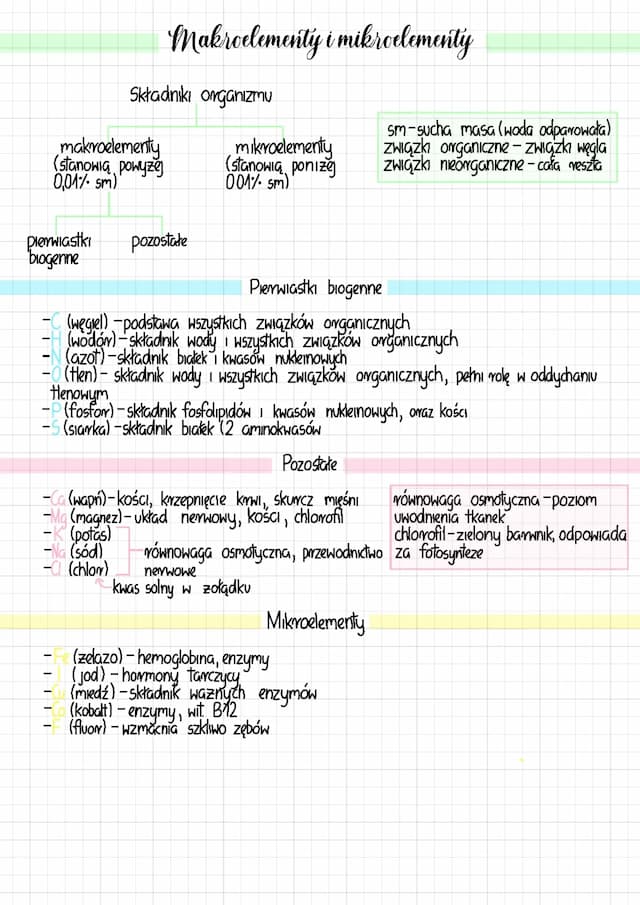 Makroelementy i mikroelementy
Składniki organizmu
makroelementy
(stanowią powyżej
0,01% sm)
mikroelementy
(stanowią poniżej
0,01% sm)
sm-sucha masa (woda odparowała)
związki organiczne - związki węgla
związki nieorganiczne - cała reszta
pierwiastki
biogenne
pozostałe
Pierwiastki biogenne
-C (węgiel) -podstawa wszystkich związków organicznych
-H (wodór) -składnik wody i wszystkich związków organicznych
-N (azot) -składnik białek i kwasów nukleinowych
-O (tlen) - składnik wody i wszystkich związków organicznych, pełni rolę w oddychaniu
tlenowym
-P (fosfor) - składnik fosfolipidów i kwasów nukleinowych, oraz kości
-S (siarka) -składnik białek (2 aminokwasów
Pozostałe
-Ca (wapń)-kości, krzepnięcie krwi, skurcz mięśni
-Mg (magnez)- układ nerwowy, kości, chlorofil
-K (potas)
-Na (sód)
-Cl (chlor)
równowaga osmotyczna, przewodnictwo
nerwowe
kwas solny w żołądku
równowaga osmotyczna -poziom
uwodnienia tkanek
chlorofil-zielony barwnik, odpowiada
za fotosyntezę
Mikroelementy
-Fe (żelazo) - hemoglobina, enzymy
-J (jod) - hormony tarczycy
-Cu (miedź) -składnik ważnych enzymów
-Co (kobalt) - enzymy, wit. B12
-F (fluor) - wzmacnia szkliwo zębów